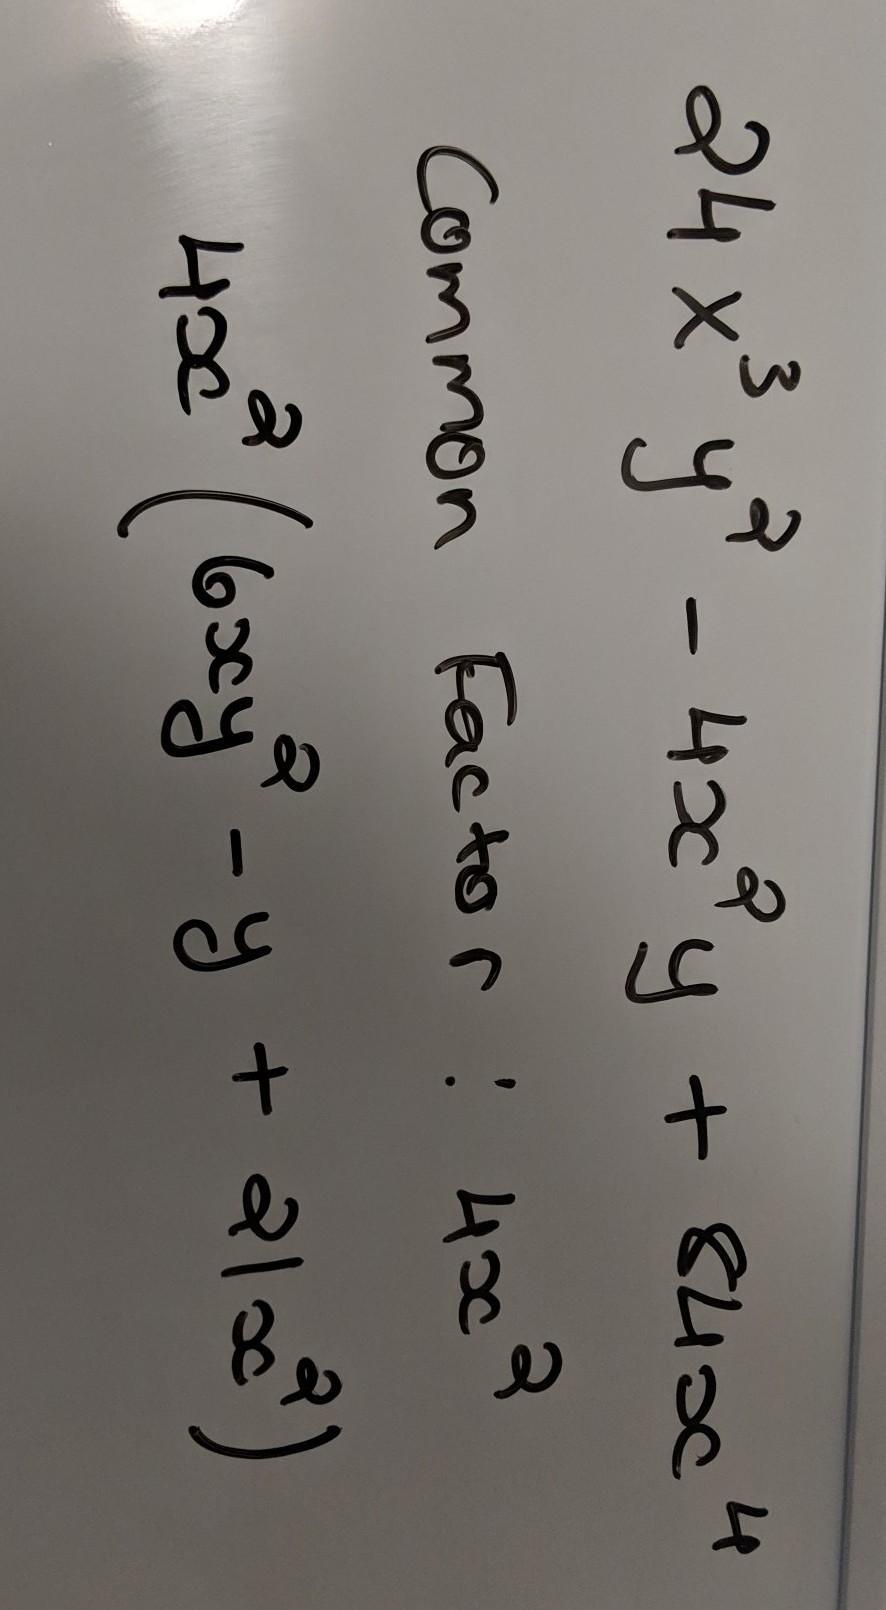 24x³y² - 4x²y + 84x⁴
Common Factor : 4x²
4x² (6xy² - y + 21x²)